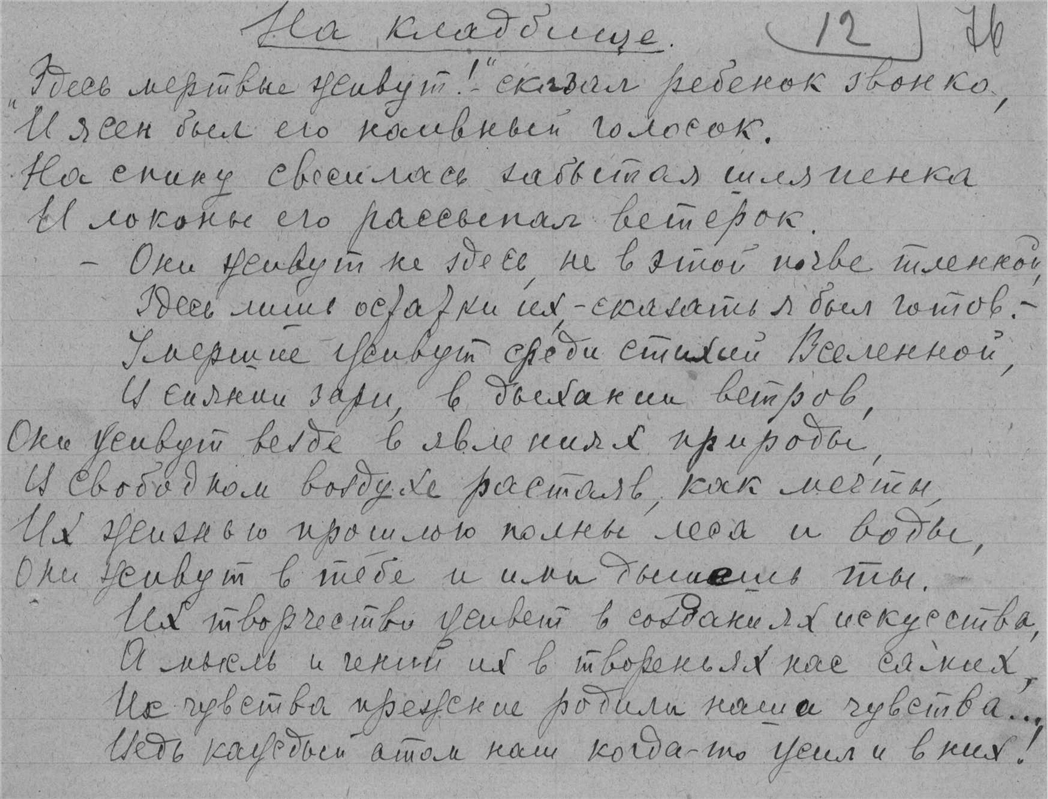 На кладбище. 12 76
"Здесь мертвые живут!" - сказал ребенок звонко,
И ясен был его наивный голосок.
На спину свесилась забытая шляпенка
И локоны его рассыпал ветерок.
- Они живут не здесь, не в этой почве тленной,
Здесь лишь остатки их, - сказать я был готов. -
Умершие живут среди стихий Вселенной,
В сиянии зари, в дыхании ветров,
Они живут везде в явлениях природы,
В свободном воздухе растаяв, как мечты,
Их жизнью прошлою полны леса и воды,
Они живут в тебе и ими дышешь ты.
Их творчество живет в созданиях искусства,
А мысль и гений их в твореньях нас самих,
Их чувства прежние родили наши чувства...,
Ведь каждый атом наш когда-то жил и в них!